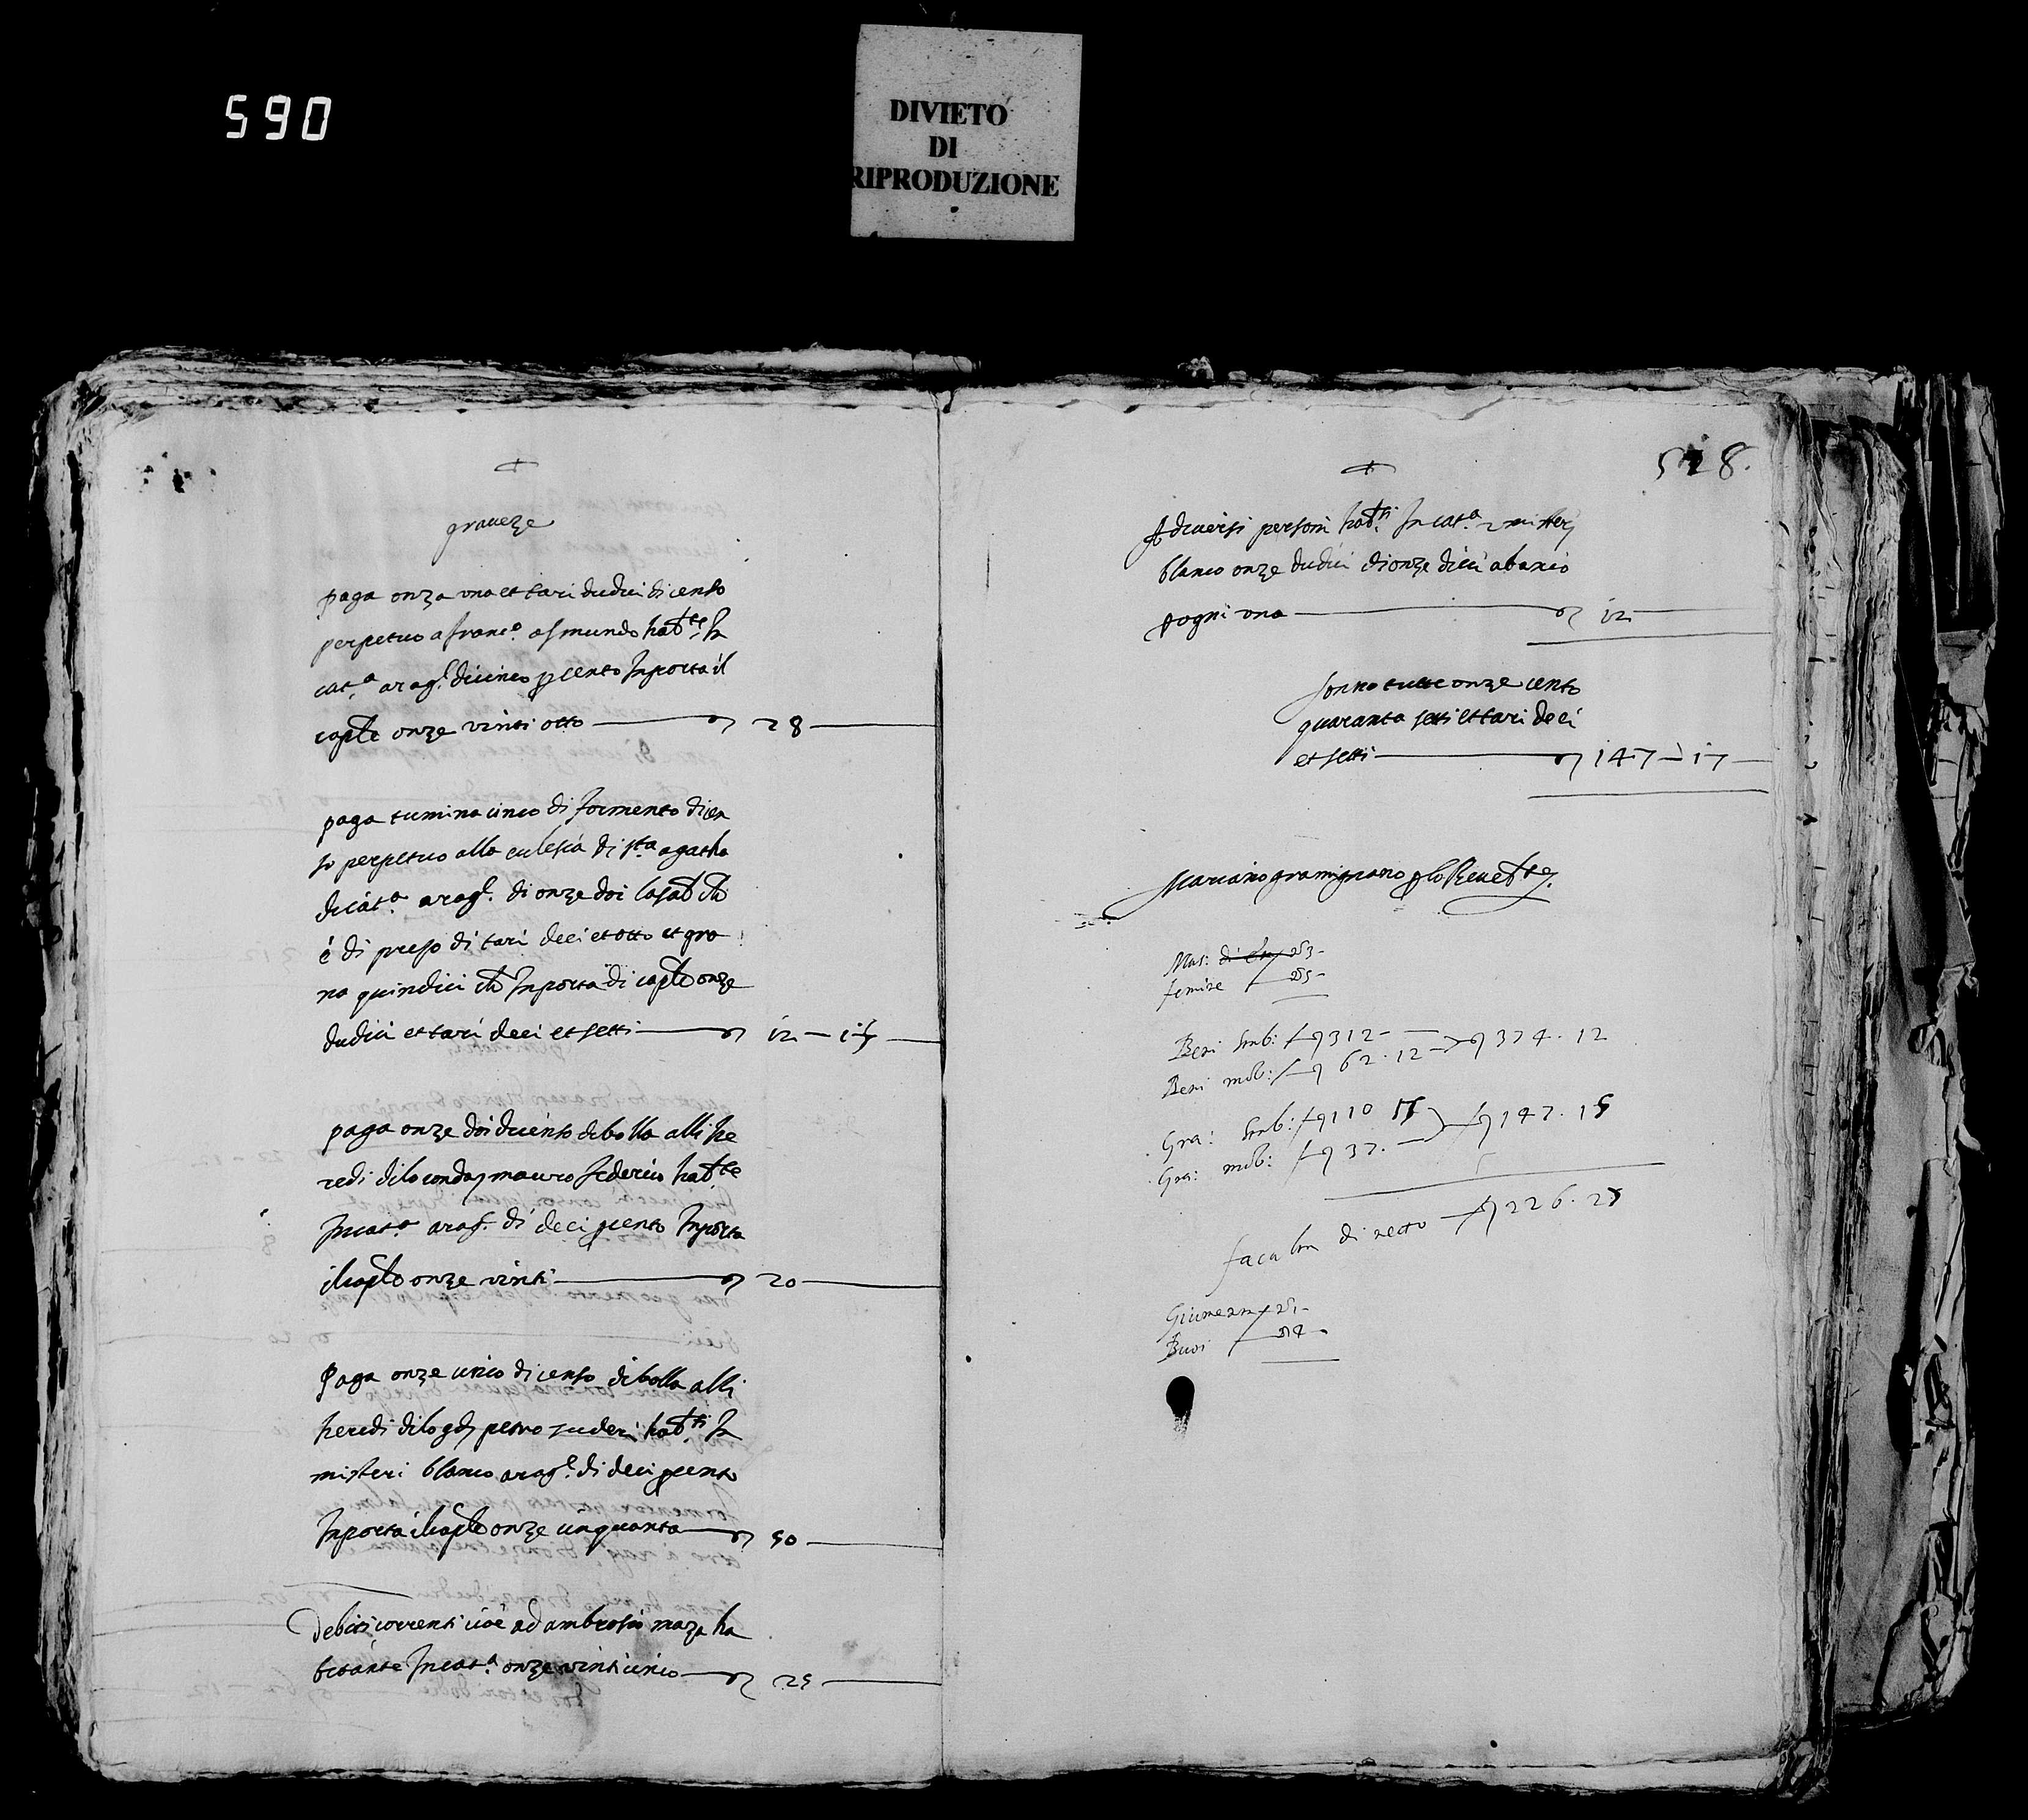 590
DIVIETO
DI
RIPRODUZIONE
graueze
paga onza una et tari dudici di censo
perpetuo a franc.o asmundo hab.te In
cat.a a rag.e di cinco p cento Inporta il
caple onze vinti otto 28
paga tumina cinco di formento di cen
so perpetuo alla eclesia di s.ta agatha
di cat.a a rag.e di onze doi
è di preso di tari deci et otto et gra
na quindici Inporta di caple onze
dudici et tari deci et setti 12 — 17
paga onze doi di censo di bolla alli he
redi di lo condam mauro federico hab.te
In cat.a a rag.e di deci p cento Inporta
il caple onze vinti 20
Paga onze cinco di censo di bolla alli
heredi di lo qdm petro hab.ti In
misteri blanco a rag.e di deci p cento
Inporta il caple onze cinquanta 50
Debiti correnti cioè ad ambrosio maza ha
bitante In cat.a onze vinti cinco 25
528.
A diversi personi hab.ti In cat.a misteri
blanco onze dudici di onze dieci a bascio
p ogni una 12
sonno tutte onze cento
quaranta setti et tari deci
et setti 147 — 17
Mariano gramignano p lo
Mas: 3
femine 5
Beni stab: 312
Beni mob: 62.12 374.12
Gra: stab: 110 17
Gra: mob: 37. 147.17
faculta di netto 226.25
Giumenta 1
Buoi 4